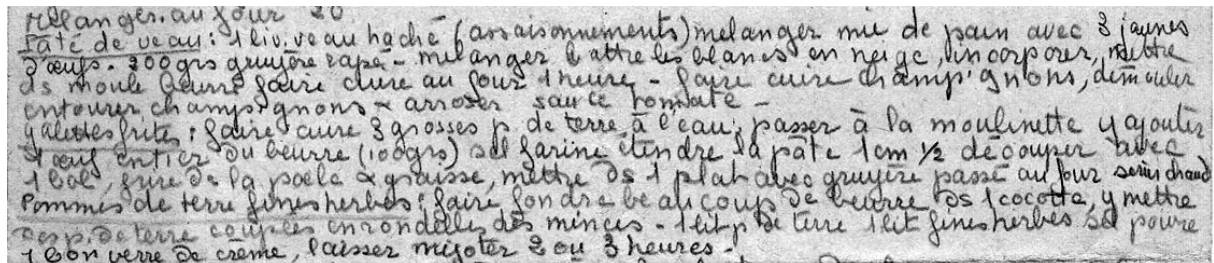 Mélanger. au four 20
Pâté de veau : 1 liv. veau haché (assaisonnements) mélanger mie de pain avec 3 jaunes
d'œufs - 200 grs gruyère rapé - mélanger battre les blancs en neige, incorporer, mettre
ds moule beurré faire cuire au four 1 heure - faire cuire champignons, démouler
entourer champignons & arroser sauce tomate -
galettes frites : faire cuire 3 grosses p. de terre à l'eau, passer à la moulinette y ajouter
1 œuf entier du beurre (100 grs) sel farine étendre la pâte 1 cm ½ découper avec
1 bol, frire de la poele & graisse, mettre ds 1 plat avec gruyère passé au four servir chaud
Pommes de terre fines herbes : faire fondre beaucoup de beurre ds 1 cocotte, y mettre
des p. de terre coupées en rondelles très minces - 1 lit p de terre 1 lit fines herbes sel poivre
1 bon verre de crème, laisser mijoter 2 ou 3 heures -